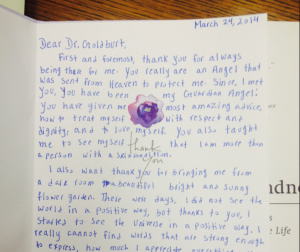 March 24, 2014
Dear Dr. Goldburt,
First and foremost, thank you for always
being there for me. You really are an Angel that
was sent from Heaven to protect me. Since, I met
you, you have been my Guardian Angel.
You have given me most amazing advice,
how to treat myself with respect and
dignity, and to love myself. You also taught
me to see myself that I am more than
thank you
a person with a
I also want thank you for bringing me from
a dark room beautiful bright and sunny
flower garden. There were days, I did not see the
world in a positive way, but thanks to you, I
started to see the universe in a positive way. I
really cannot find words that are strong enough
to express, how much I appreciate
ndn
s
Life